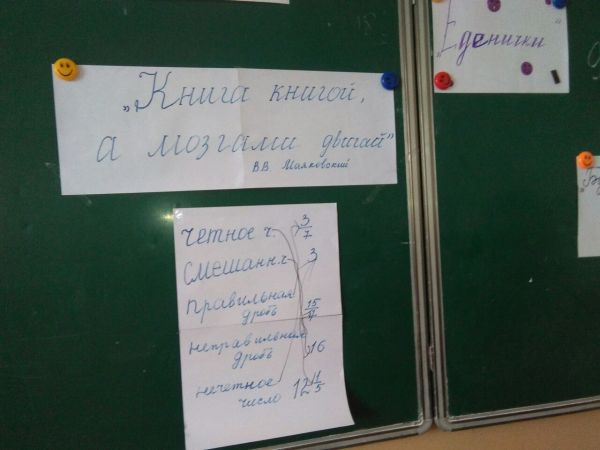 „Книга книгой,
а мозгами двигай"
В.В. Маяковский
четное ч.
3/7
смешанн. ч
3
правильная
дробь
15/4
неправильная
дробь
16
нечетное
число
12 4/5
„Еденички"